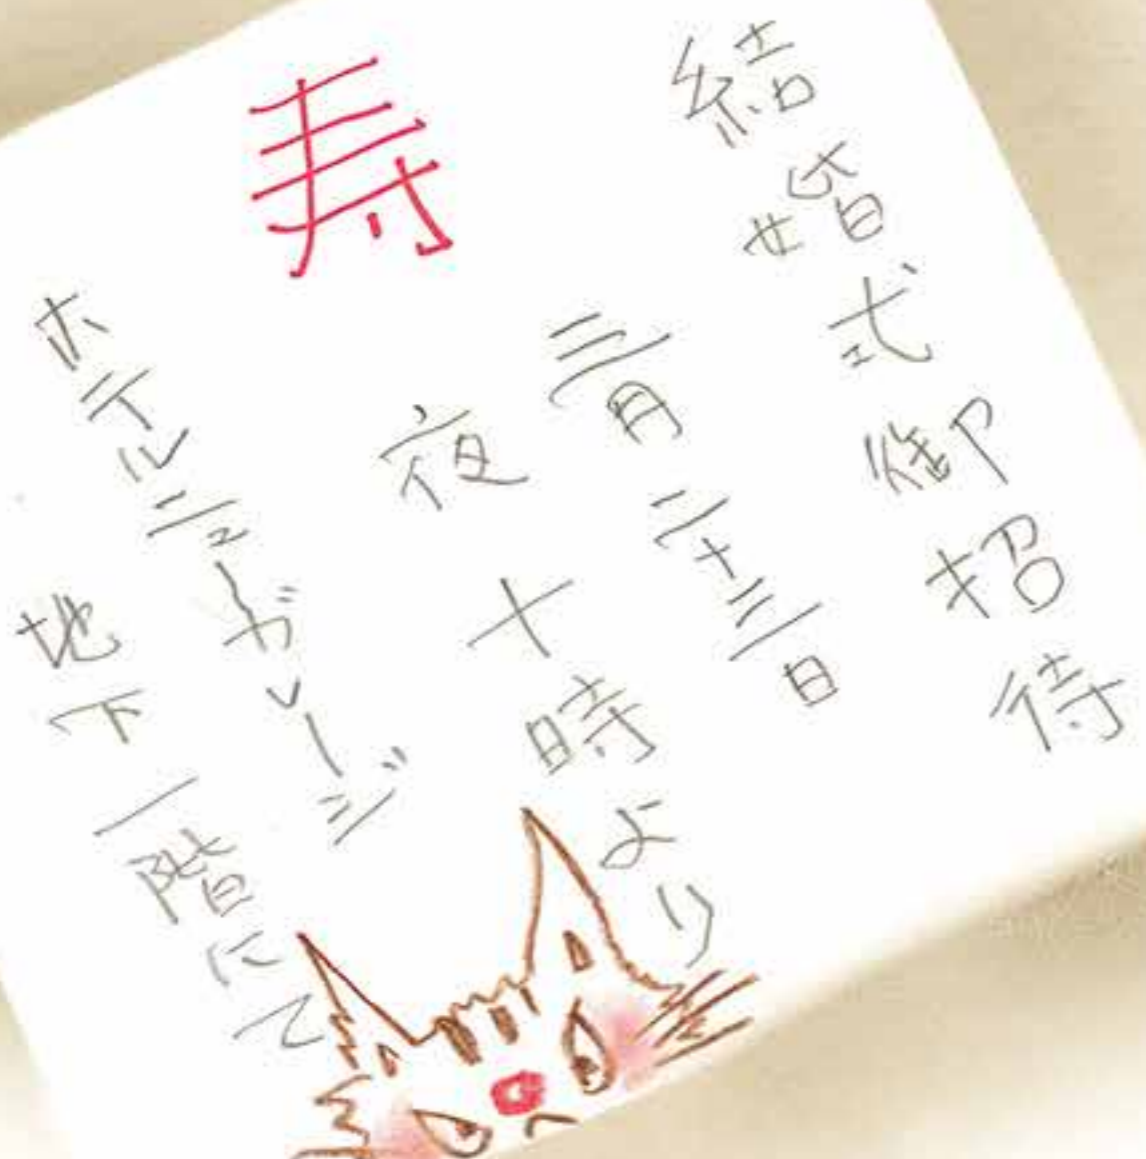 結婚式御招待
三月二十三日
夜十時より
寿
ホテルニューガレージ
地下一階にて